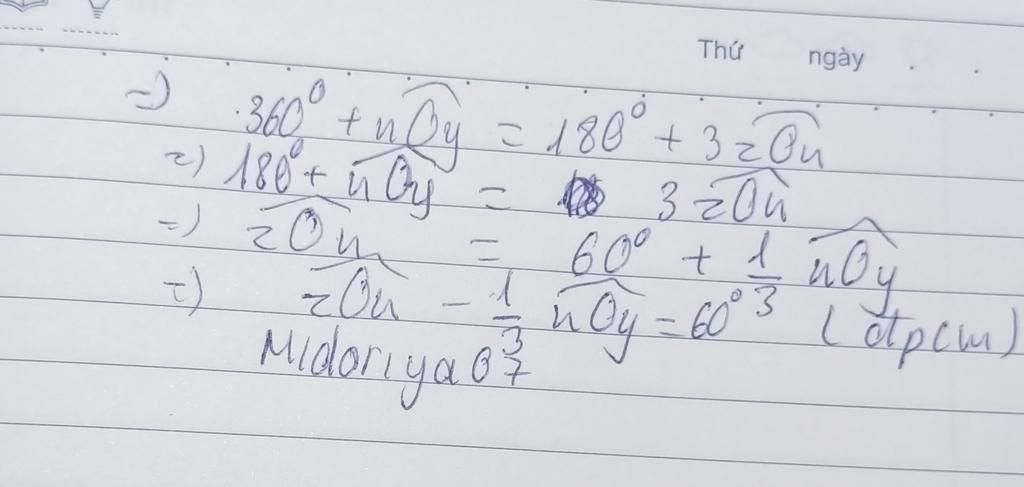 Thứ ngày . .
=> 360° + nOy = 180° + 3 zOn
=> 180° + nOy = 3 zOn
=> zOn = 60° + 1/3 nOy
=> zOn - 1/3 nOy = 60° (đpcm)
Midoriya07